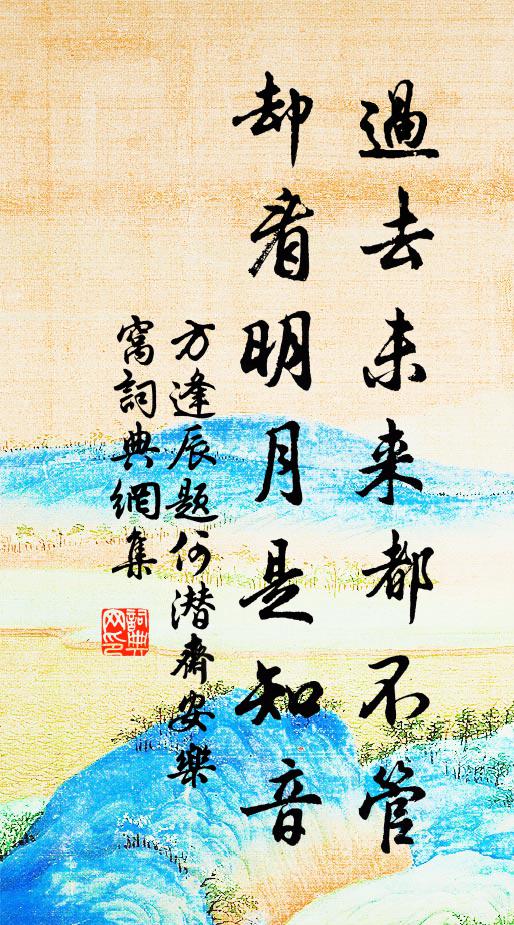 過去未来都不管
却看明月是知音
方逢辰题何潜齋安樂
窩詞典網集
詞典
网印